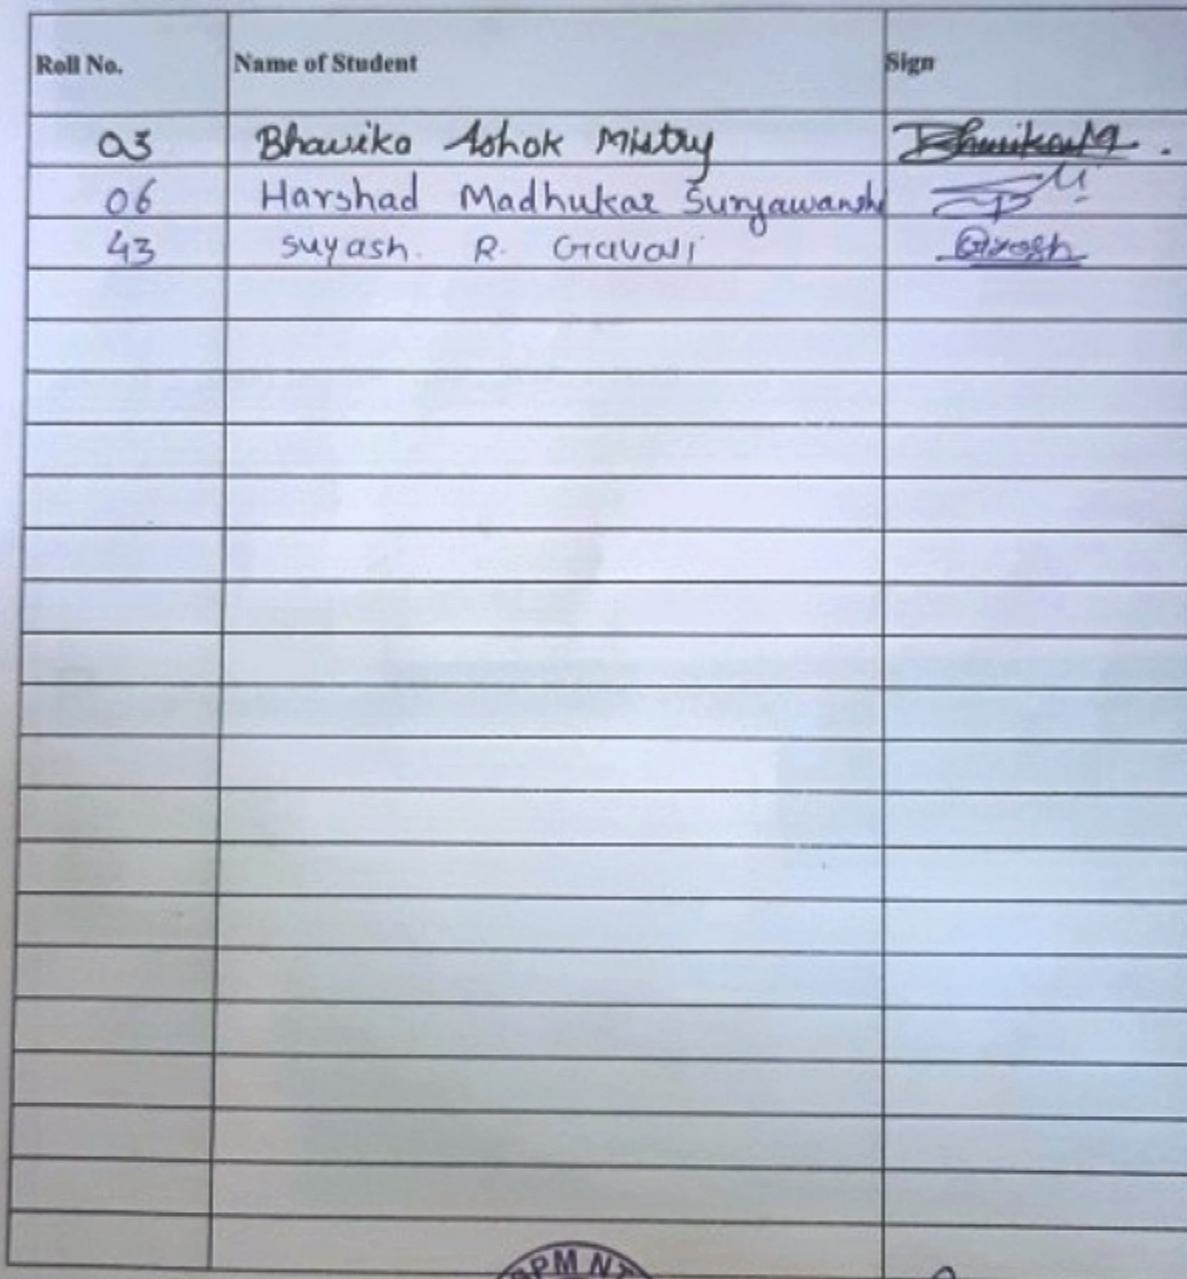 Roll No. Name of Student Sign
03 Bhavika Ashok Mistry
06 Harshad Madhukar Suryawanshi
43 Suyash. R. Gavali
PM NT